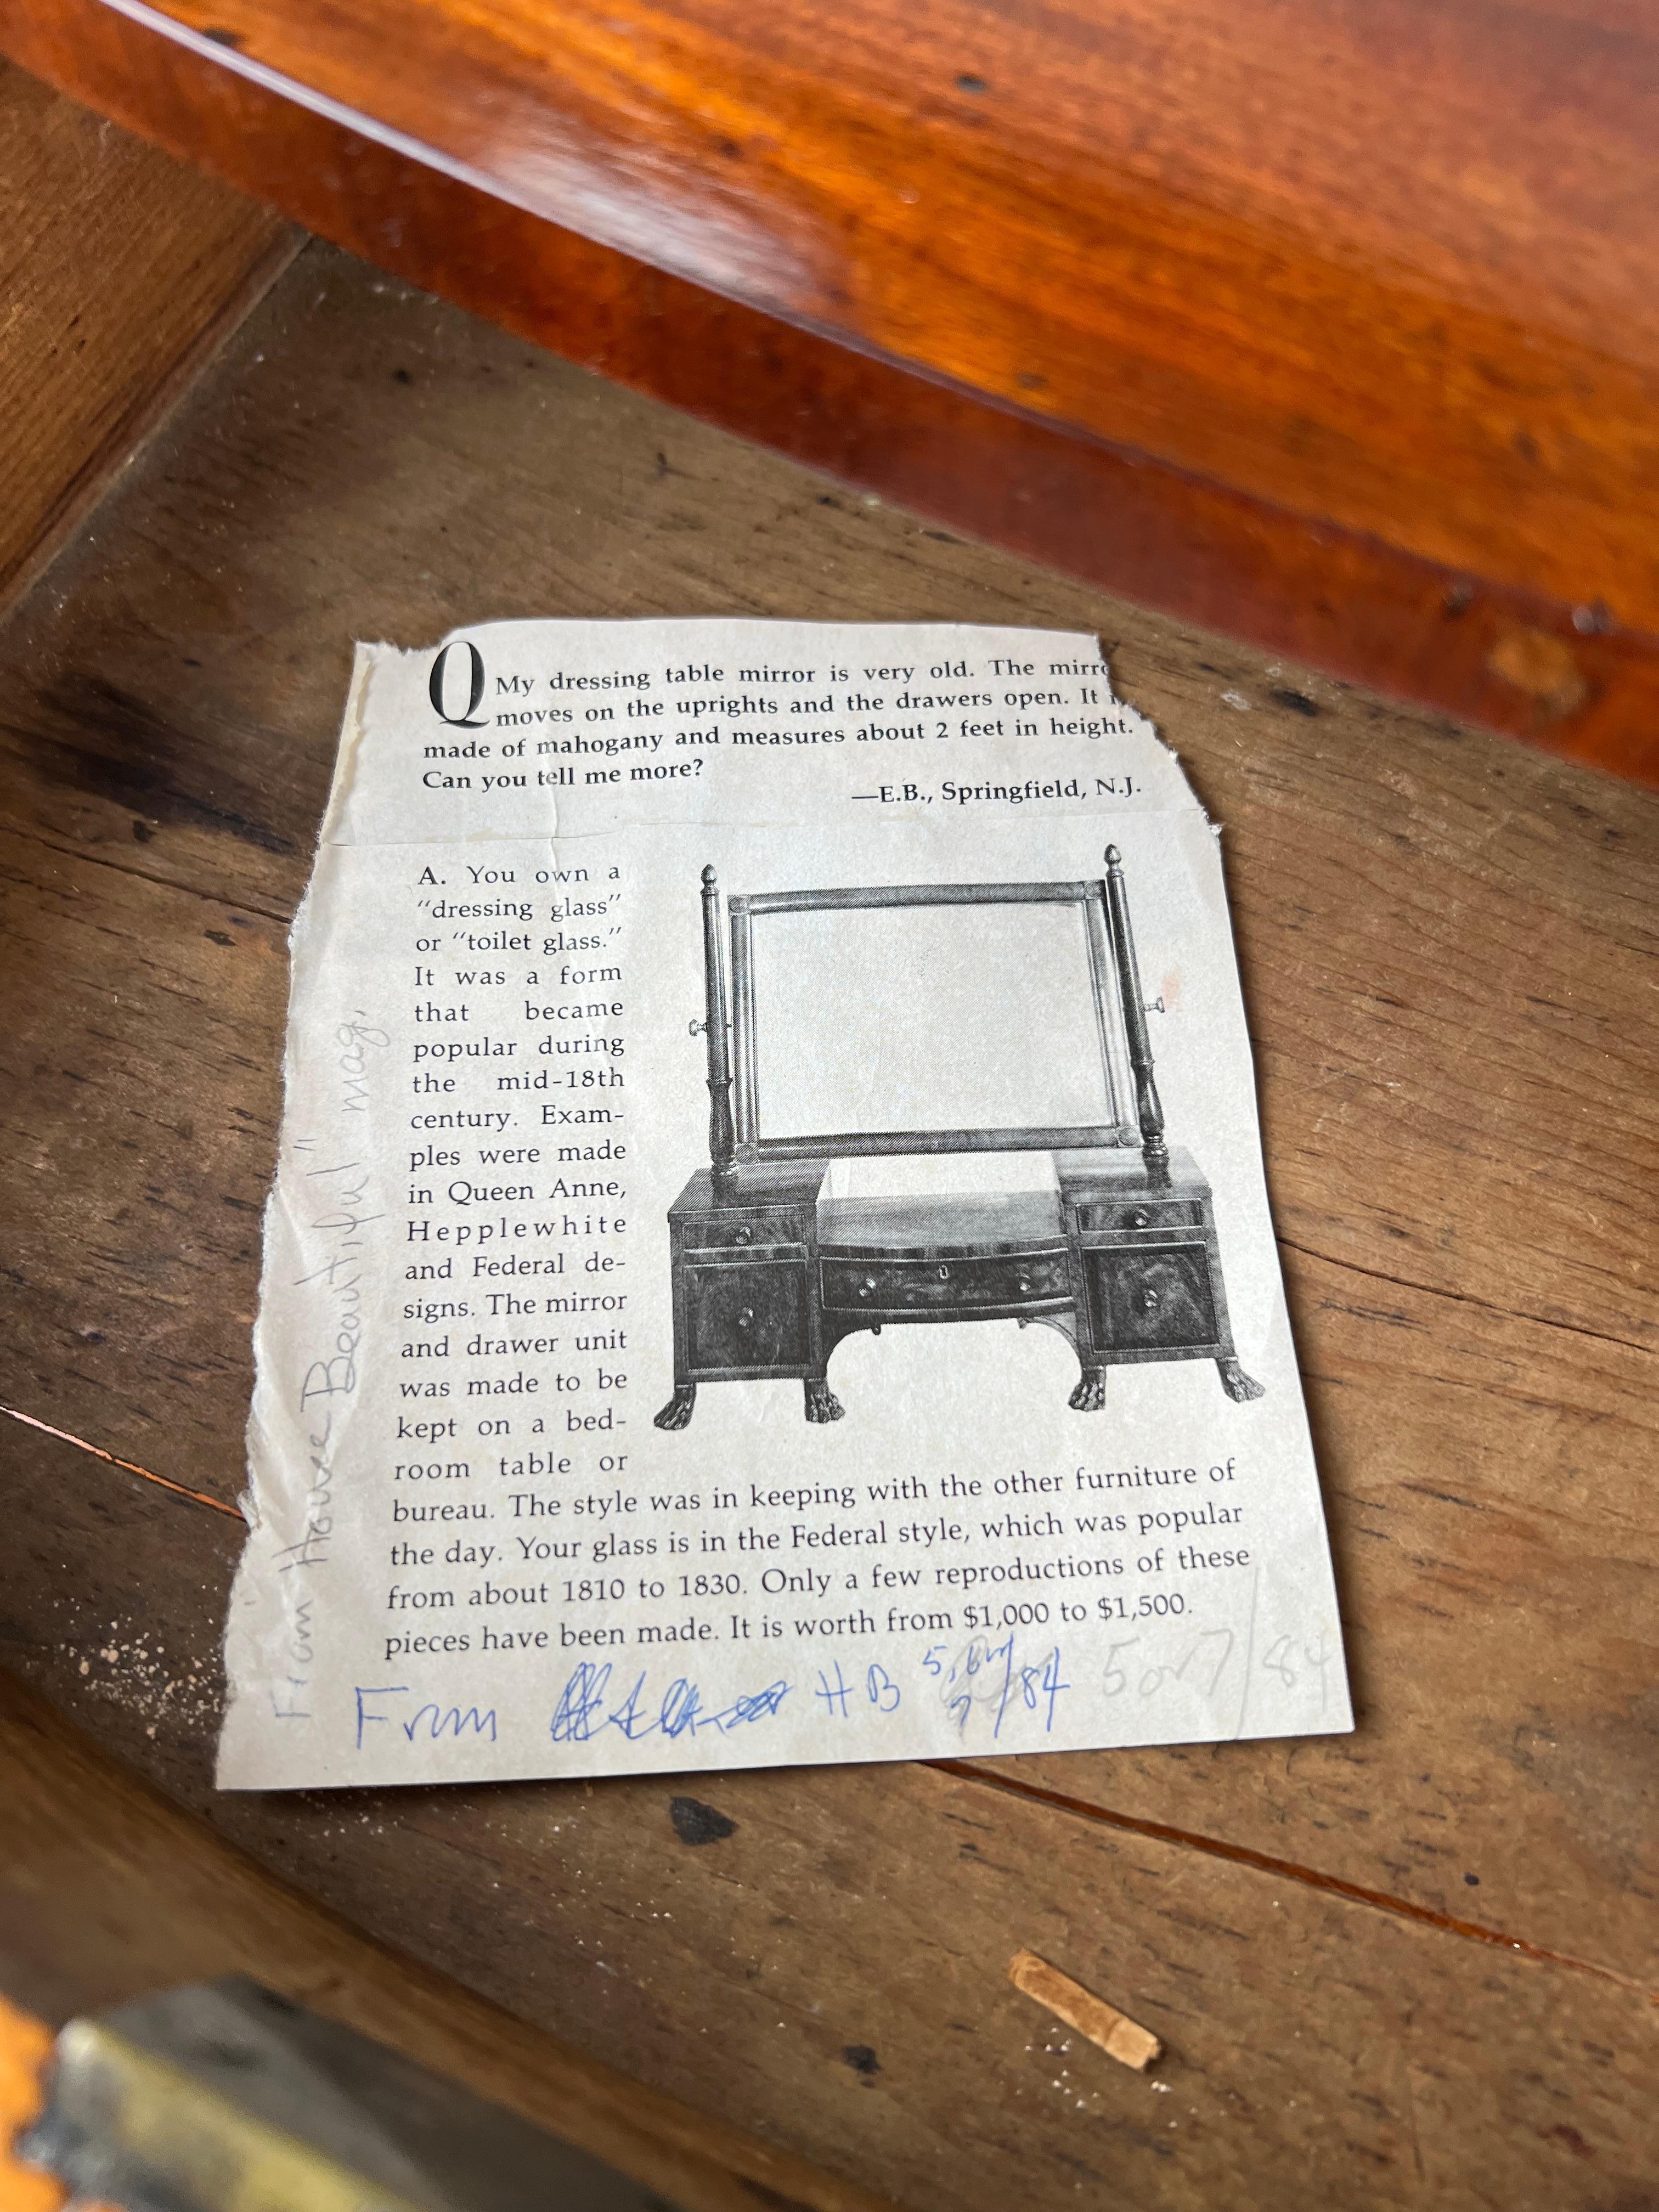 Q My dressing table mirror is very old. The mirro
moves on the uprights and the drawers open. It i
made of mahogany and measures about 2 feet in height.
Can you tell me more?
—E.B., Springfield, N.J.
A. You own a
“dressing glass”
or “toilet glass.”
It was a form
that became
popular during
the mid-18th
century. Exam-
ples were made
in Queen Anne,
Hepplewhite
and Federal de-
signs. The mirror
and drawer unit
was made to be
kept on a bed-
room table or
bureau. The style was in keeping with the other furniture of
the day. Your glass is in the Federal style, which was popular
from about 1810 to 1830. Only a few reproductions of these
pieces have been made. It is worth from $1,000 to $1,500.
From House Beautiful" mag.
From HB 5, 6 or 7/84
5 or 7/84